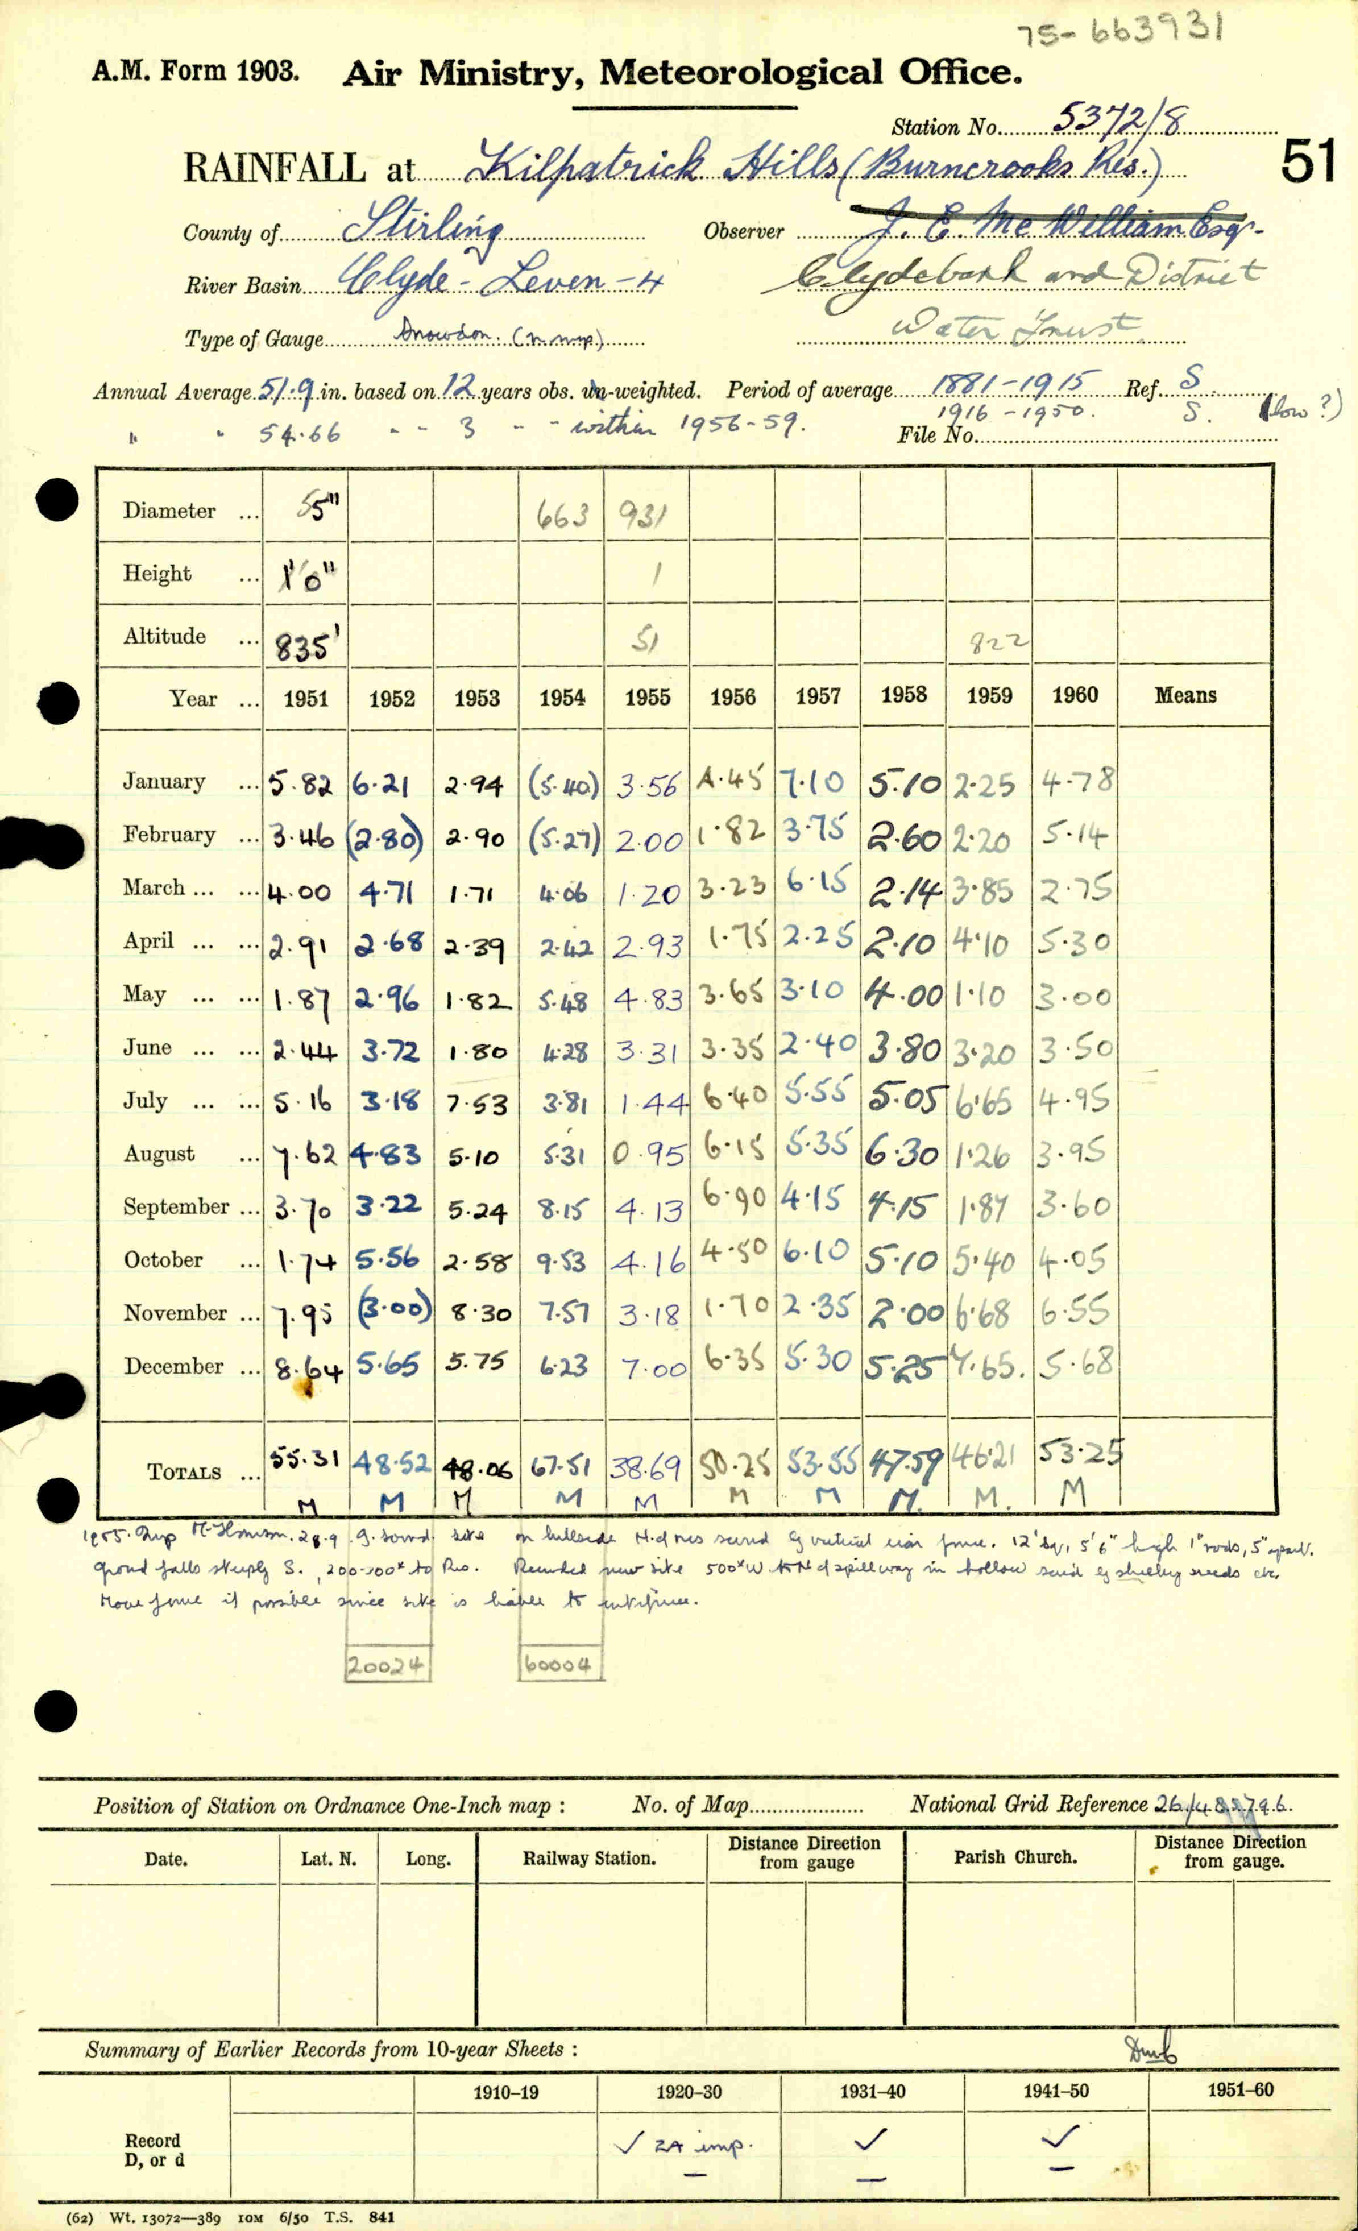 75-663931
A.M. Form 1903. Air Ministry, Meteorological Office.
Station No. 5372/8
RAINFALL at Kilpatrick Hills (Burncrooks Res.) 51
County of Stirling Observer J. E. Mc William Esq.
River Basin Clyde - Leven - 4 Clydebank and District
Type of Gauge Snowdon. Water Trust
Annual Average 51.9 in. based on 12 years obs. un-weighted. Period of average 1881-1915 Ref. S
" " 54.66 - - 3 - - within 1956-59. 1916-1950. S. (low?)
File No.
Diameter ... 5" 663 931
Height ... 1'0" 1
Altitude ... 835' 51 822
Year ... 1951 1952 1953 1954 1955 1956 1957 1958 1959 1960 Means
January ... 5.82 6.21 2.94 (5.40) 3.56 4.45 7.10 5.10 2.25 4.78
February ... 3.46 (2.80) 2.90 (5.27) 2.00 1.82 3.75 2.60 2.20 5.14
March ... ... 4.00 4.71 1.71 4.06 1.20 3.23 6.15 2.14 3.85 2.75
April ... ... 2.91 2.68 2.39 2.42 2.93 1.75 2.25 2.10 4.10 5.30
May ... ... 1.87 2.96 1.82 5.48 4.83 3.65 3.10 4.00 1.10 3.00
June ... ... 2.44 3.72 1.80 4.28 3.31 3.35 2.40 3.80 3.20 3.50
July ... ... 5.16 3.18 7.53 3.81 1.44 6.40 5.55 5.05 6.65 4.95
August ... 7.62 4.83 5.10 5.31 0.95 6.15 5.35 6.30 1.26 3.95
September ... 3.70 3.22 5.24 8.15 4.13 6.90 4.15 4.15 1.87 3.60
October ... 1.74 5.56 2.58 9.53 4.16 4.50 6.10 5.10 5.40 4.05
November ... 7.95 (3.00) 8.30 7.57 3.18 1.70 2.35 2.00 6.68 6.55
December ... 8.64 5.65 5.75 6.23 7.00 6.35 5.30 5.25 7.65. 5.68
TOTALS ... 55.31 48.52 48.06 67.51 38.69 50.25 53.55 47.59 46.21 53.25
M M M M M M M M. M. M
1955. Insp 28.9 site on hillside N. of res 12' sq, 5'6" high 1" rods, 5" apart.
ground falls steeply S., 200-300x to Res. new site 500x W to N of spillway in hollow
Move if possible since site is liable to
20024 60004
Position of Station on Ordnance One-Inch map : No. of Map National Grid Reference 26/485796.
Date. Lat. N. Long. Railway Station. Distance from gauge Direction Parish Church. Distance from gauge. Direction
Summary of Earlier Records from 10-year Sheets :
1910–19 1920–30 1931–40 1941–50 1951–60
Record D, or d ✓ 2A imp. ✓ ✓
(62) Wt. 13072—389 10M 6/50 T.S. 841